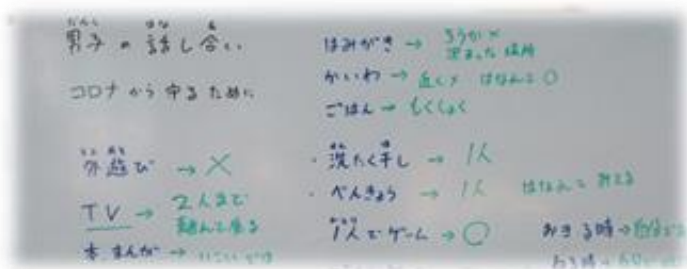 男子の話し合い
だんし はな あ
コロナから守るために
外遊び → ×
TV → 2人まで
離れて座る
本 まんが →
はみがき → ろうか×
決まった場所
かいわ → 近く× はなれて○
ごはん → もくしょく
・洗たく干し → 1人
・べんきょう → 1人 はなれて
1人でゲーム → ○
おきる時 →